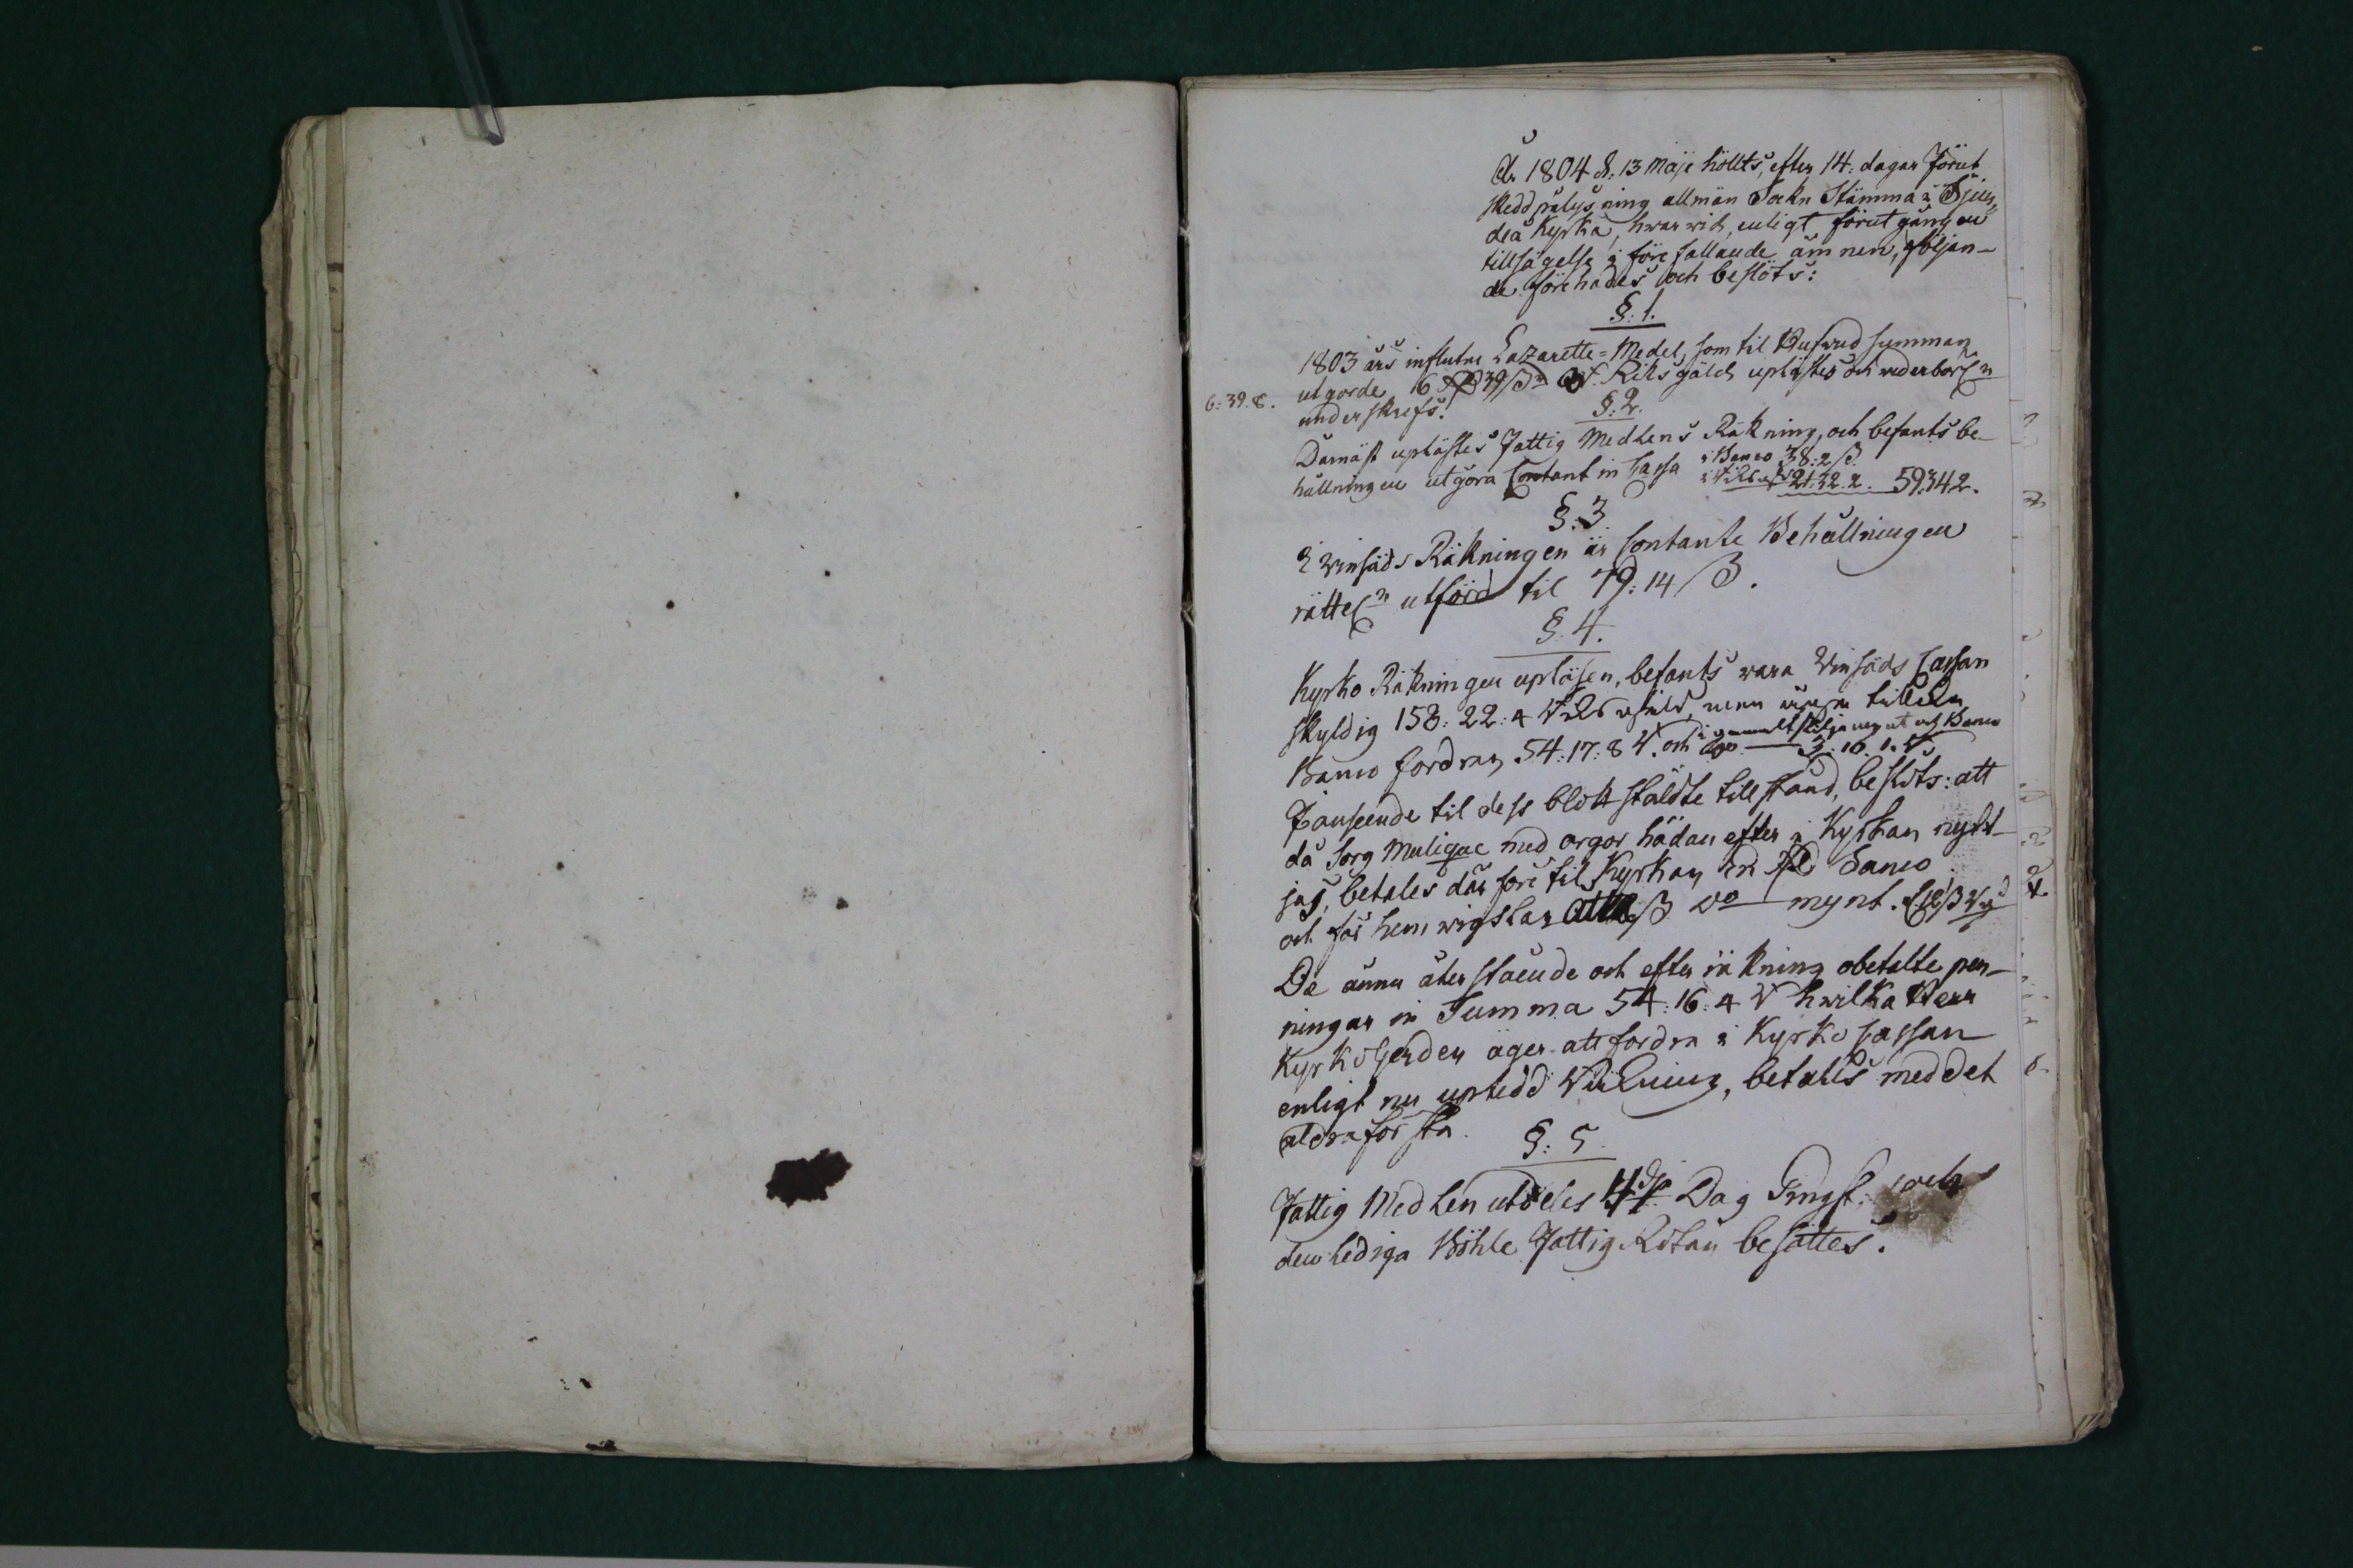 År 1804 d. 13 Maje höllts, efter 14. dagar förut
skedd pålysning allmän Sokn Stämma i Sjun„
deå Kyrka, hwarwid, enligt förutgången
tillsägelse i före fallande ämnen, följan-
de förehades och beslöts:
§: 1.
1803 års influtne Lazaretts-Medel, som til Hufwud summan
utgorde 16 39 Riksgäld uplästes och wederbörl:n
6:39.8.
underskrefs.
§: 2.
Darnäst uplästes Fattig Medlens Räkning, och befants be-
hållningen utgöra Contant in Cassa i Banco 38:2 ß
21:32.2. 59.34.2.
§: 3.
I Winsäds Räkningen är Contante Behållningen
rättel:n utförd til 79:14 ß.
§. 4.
Kyrko Räkningen upläsen, befants wara Winsäds Cassan
skyldig 158:22:4 men
Banco fordran 54:17:8 och 3:16.1.
I anseende til dess blottstäldte tillstånd, beslöts: att
då Sorg Musique med orgor hädan efter i Kyrkan nytt-
jas, betales därföre til Kyrkan en Rd Banco
och för hemwigslar ß do mynt.
De ännu återstående och efter räkning obetalte pen-
ningar in Summa 54:16:4 hwilka Herr
Kyrkoherden äger att fordra i Kyrko Cassan
enligt nu uptedd Räkning, betales med det
aldraförsta.
§: 5.
Fattig Medlen utdeles 4de Dag Pingst. och
den lediga Böhle Fattig Rotan besättes.